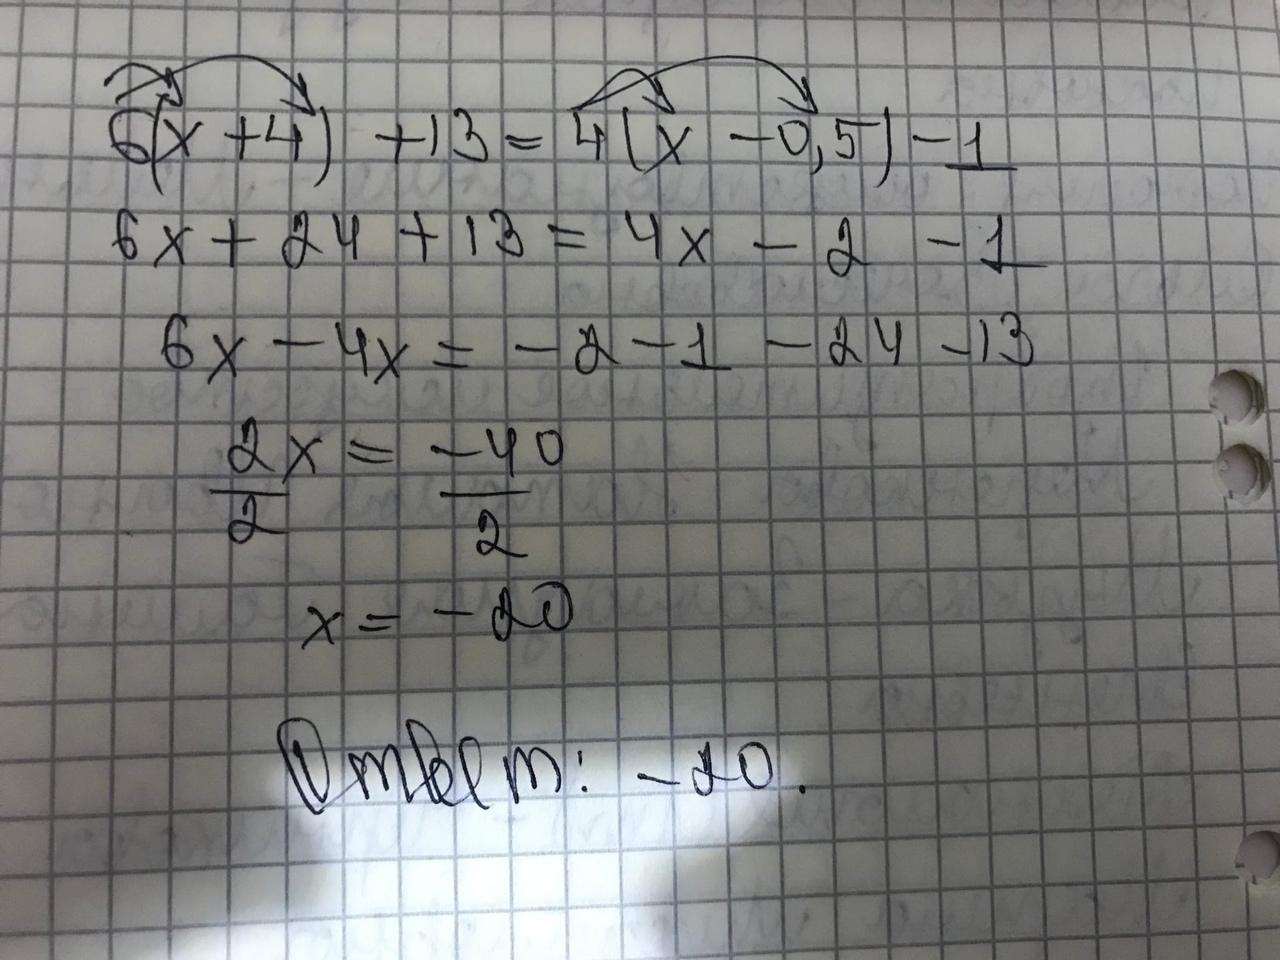 6(x + 4) + 13 = 4(x - 0,5) - 1
6x + 24 + 13 = 4x - 2 - 1
6x - 4x = -2 - 1 - 24 - 13
2x = -40
2 2
x = -20
Ответ: -20.